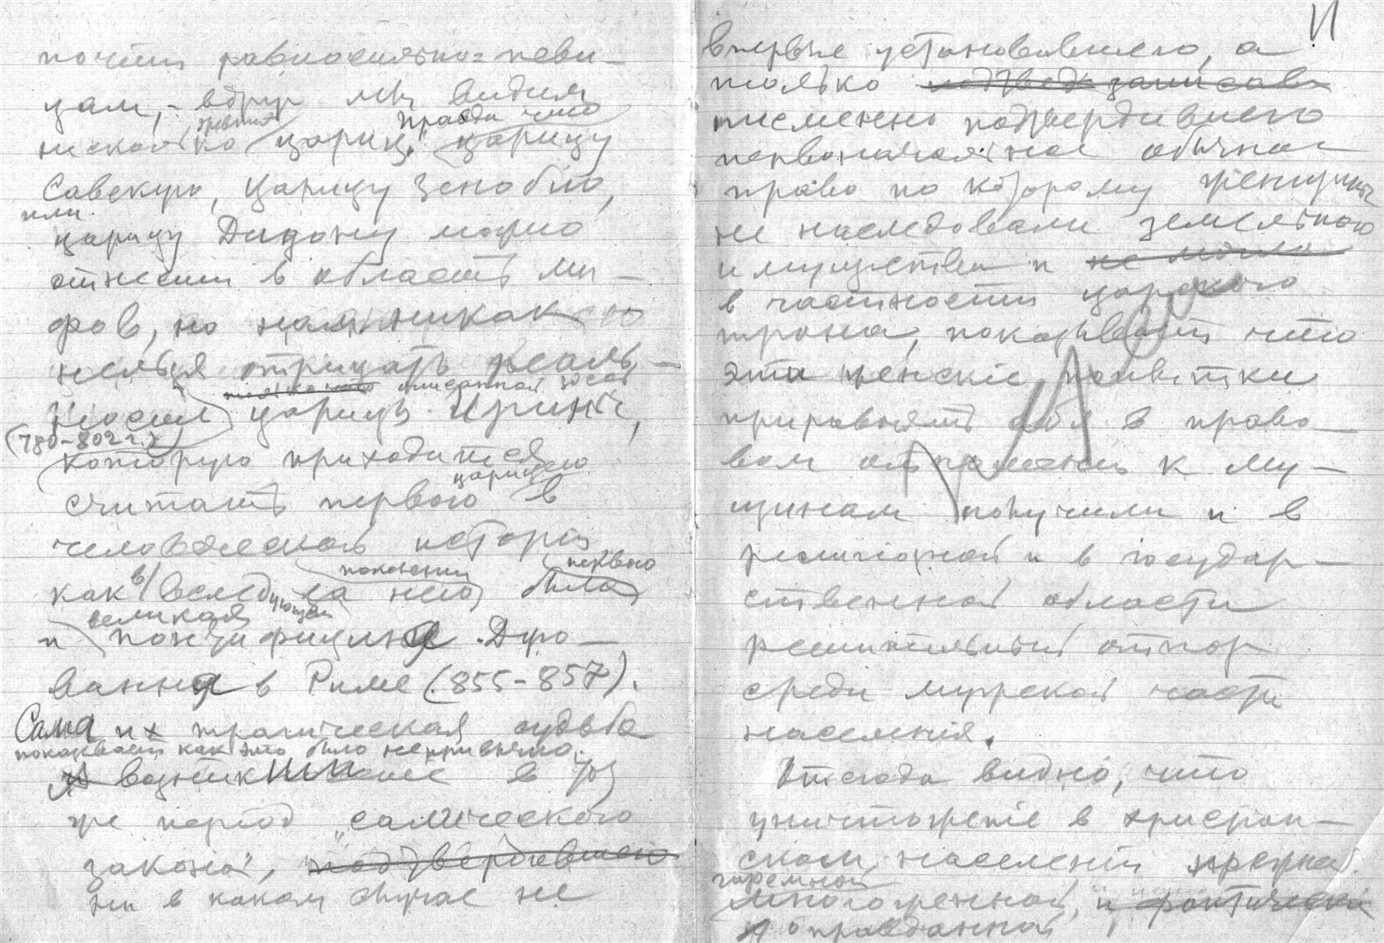 почти равносильно певи-
цам, - вдруг мы видим
древних Правда что
несколько цариц. царицу
Савскую, царицу Зенобию,
или
царицу Дидону можно
отнести в область ми-
фов, но нам никак
нельзя отрицать реаль-
описанной здесь
ности царицы Ирины,
(780-802 г.)
которую приходится
царицею
считать первою в
человеческой истории
поколении
как в последующем за нею была
великая
и понтифицина Джо-
ванна в Риме (855-857).
Сама их трагическая судьба
показывает как это было непривычно.
возник в тот
же период „салического
закона", подтвердившего
ни в каком случае не
11
впервые установившего, а
только
письменно подтвердившего
первоначальное обычное
право по которому женщины
не наследовали земельного
имущества и не могли
в частности царского
трона, показывает что
эти женские попытки
приравнять себя в право-
вом отношении к му-
щинам получили и в
религиозной и в государ-
ственной области
решительный отпор
среди мужской части
населенія.
Отсюда видно, что
уничтоженіе в христіан-
ском населеніи
гаремной
многоженной, и фактически
оправданной